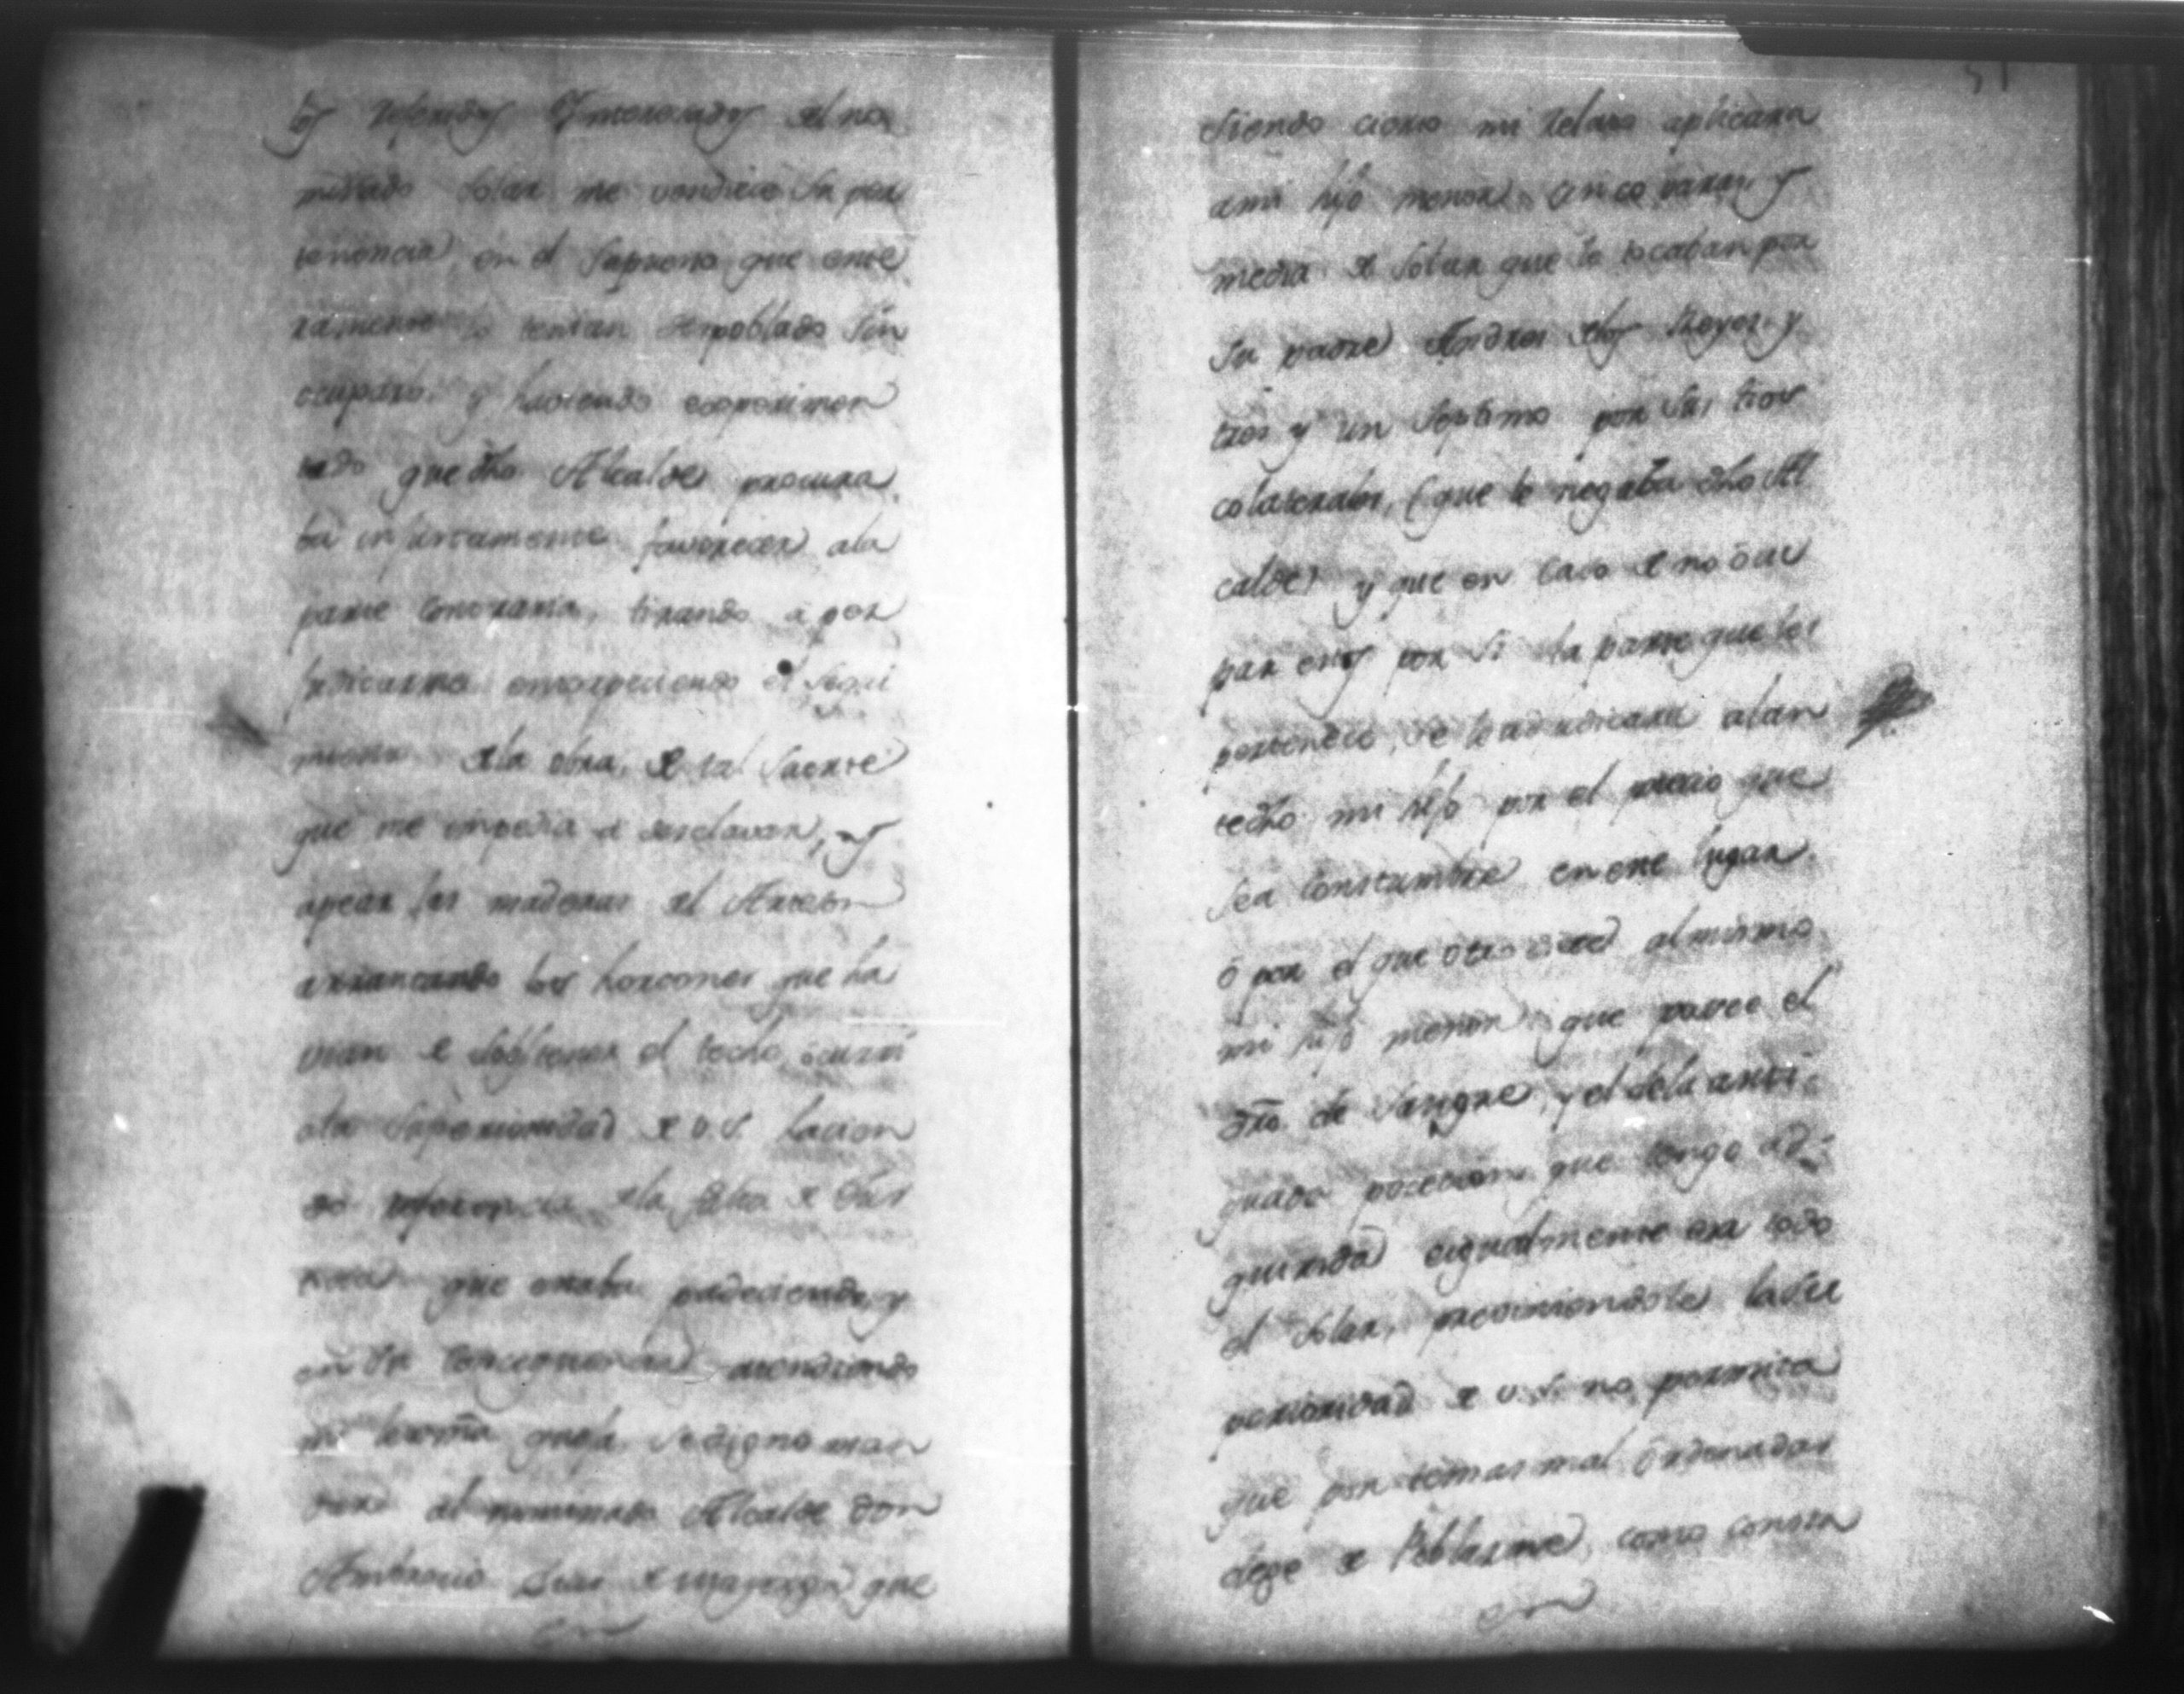 los referidos Ynteresados del no
minado Solar me vendiese su per
tenencia, en el Supuesto que ente
ramente lo tenian despoblado sin
ocuparlo. y haviendo experimen
tado que dho Alcalde procura
ba injustamente favorecer ala
parte contraria, tirando a per
judicarme entorpeciendo el segui
miento dela obra, de tal Suerte
que me impedia el desclavar, y
apear las maderas del
arrancando los horcones que ha
vian de sobstener el techo, ocurri
ala Superioridad de V.S. hacien
do referencia dela falta de Jus
ticia que estaba padeciendo, y
en su consequencia atendiendo
mi lexma queja, se digno man
dar al nominado Alcalde don
Ambrosio que
en
51
Siendo cierto mi relato aplicara
ami hijo menor cinco varas y
media de Solar que le tocaban por
Su padre Andres delos Reyes, y
tres y un Septimo por sus tios
colaterales, (que le negaba dho Al
calde) y que en caso de no ocu
par estos por si la parte que les
pertenece, se le adjudicara atan
tedho mi hijo por el precio que
sea constumbre en este lugar
ó por el que otro diere al mismo
mi hijo menor que posee el
dro. de Sangre, y el dela anti
guada poseción que tengo ad
quirida eigualmente era todo
el Solar, previniendole la Su
perioridad de V.S. no permita
que por temas mal ordenadas
deje de Poblarme, como consta
en